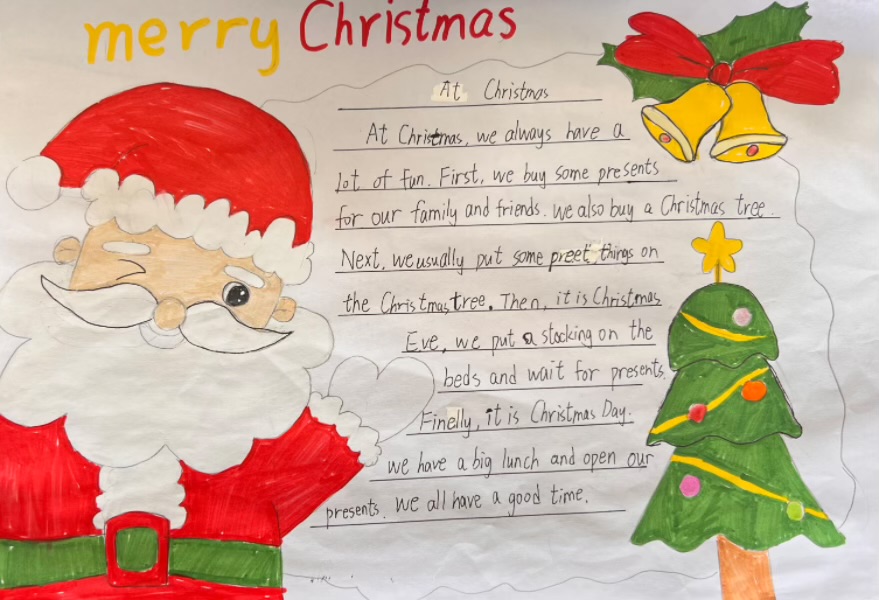 merry Christmas
At Christmas
At Christmas, we always have a
lot of fun. First, we buy some presents
for our family and friends. We also buy a Christmas tree.
Next, we usually put some preet things on
the Christmas tree. Then, it is Christmas
Eve, we put a stocking on the
beds and wait for presents.
Finelly, it is Christmas Day.
we have a big lunch and open our
presents. We all have a good time.